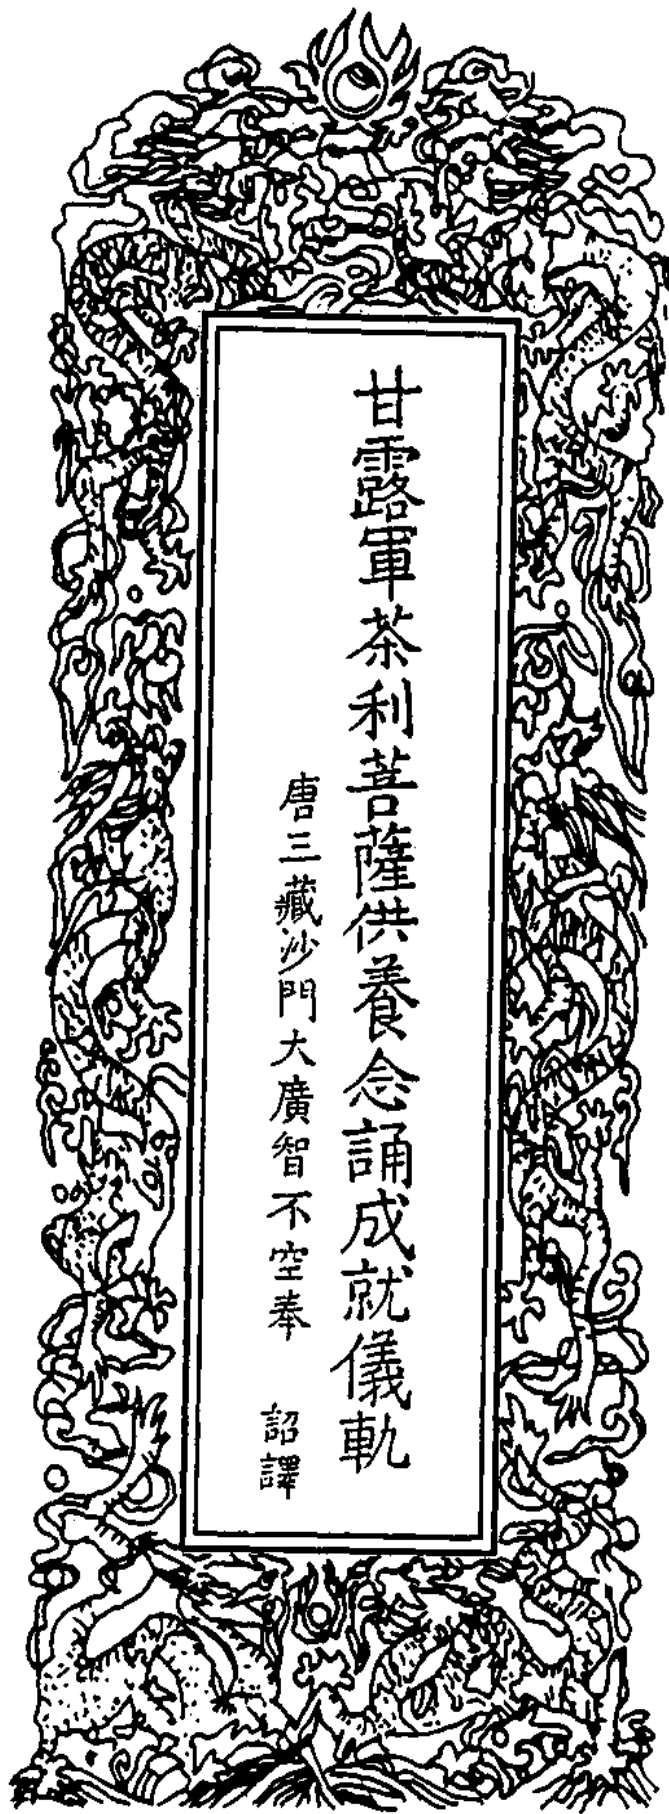 甘露軍荼利菩薩供養念誦成就儀軌
唐三藏沙門大廣智不空奉 詔譯